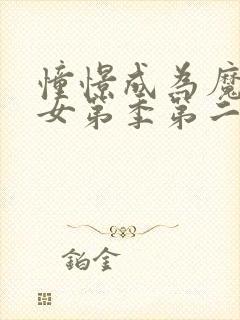 憧憬成为魔
女第季第二
铂金